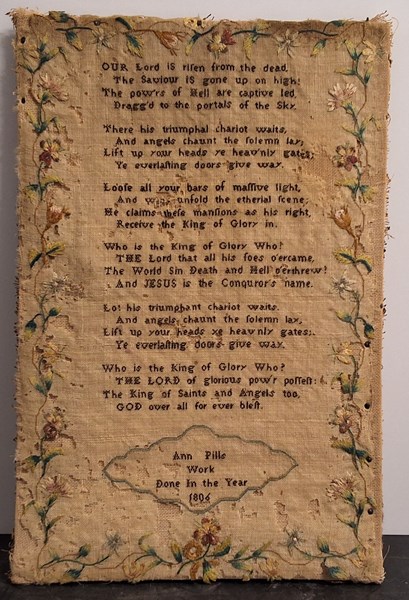 OUR Lord is riſen from the dead,
The Saviour IS gone up on high!
The pow'rs of Hell are captive led,
Dragg'd to the portals of the Sky.
There his triumphal chariot waits,
And angels chaunt the ſolemn lay;
Lift up your heads ye heav'nly gates;
Ye everlaſting doors give way.
Looſe all your bars of maſſive light,
And wide unfold the etherial ſcene;
He claims theſe manſions as his right,
Receive the King of Glory in.
Who is the King of Glory Who?
THE Lord that all his foes o'ercame,
The World Sin Death and Hell o'erthrew!
And JESUS is the Conquror's name.
Lo! his triumphant chariot waits,
And angels chaunt the ſolemn lay,
Lift up your heads ye heav'nly gates;
Ye everlaſting doors give way.
Who is the King of Glory Who?
THE LORD of glorious pow'r poſſeſt;
The King of Saints and Angels too,
GOD over all for ever bleſt.
Ann Pills
Work
Done In the Year
1806